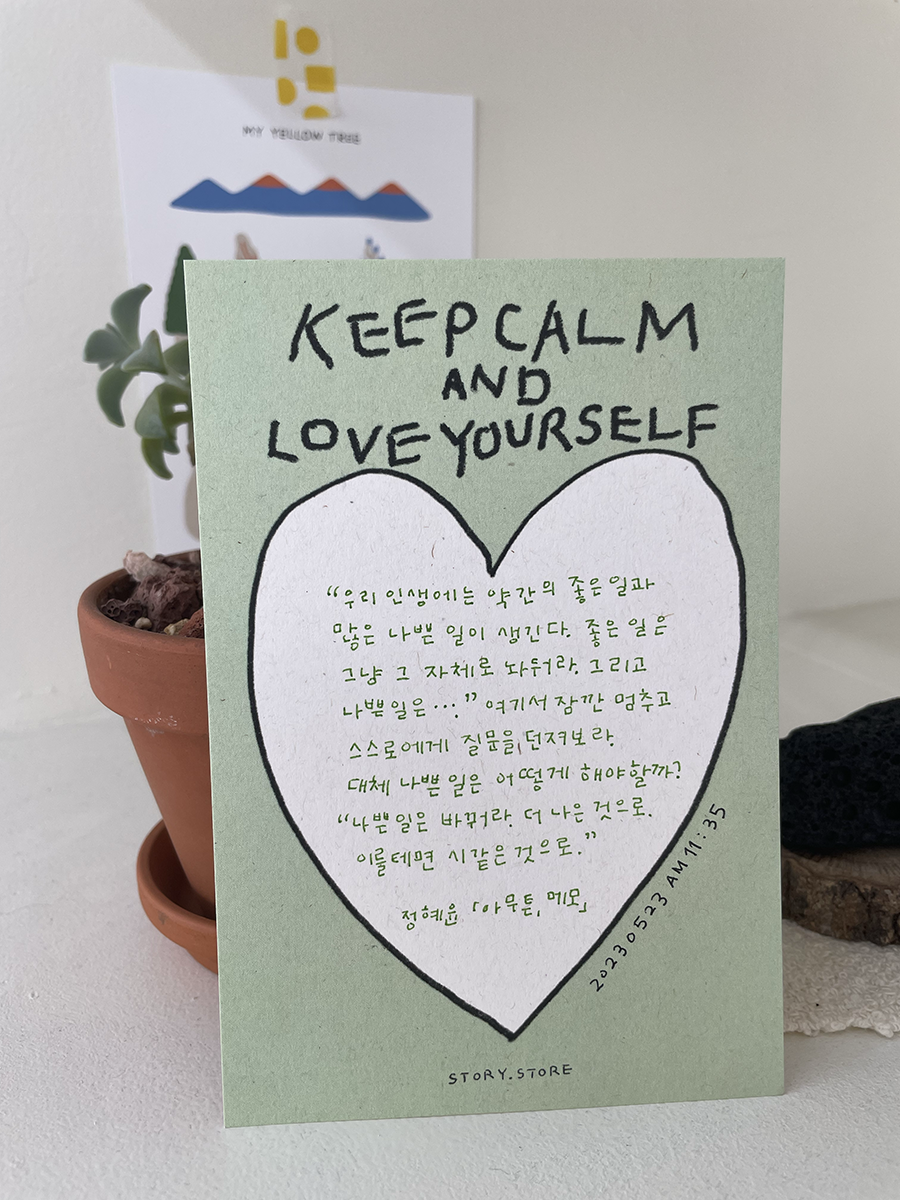 MY YELLOW TREE
KEEP CALM
AND
LOVE YOURSELF
“우리 인생에는 약간의 좋은 일과
많은 나쁜 일이 생긴다. 좋은 일은
그냥 그 자체로 놔둬라. 그리고
나쁜 일은….” 여기서 잠깐 멈추고
스스로에게 질문을 던져보라.
대체 나쁜 일은 어떻게 해야할까?
“나쁜 일은 바꿔라. 더 나은 것으로.
이를테면 시 같은 것으로.”
정혜윤 「아무튼, 메모」
20230523 AM 11:35
STORY.STORE